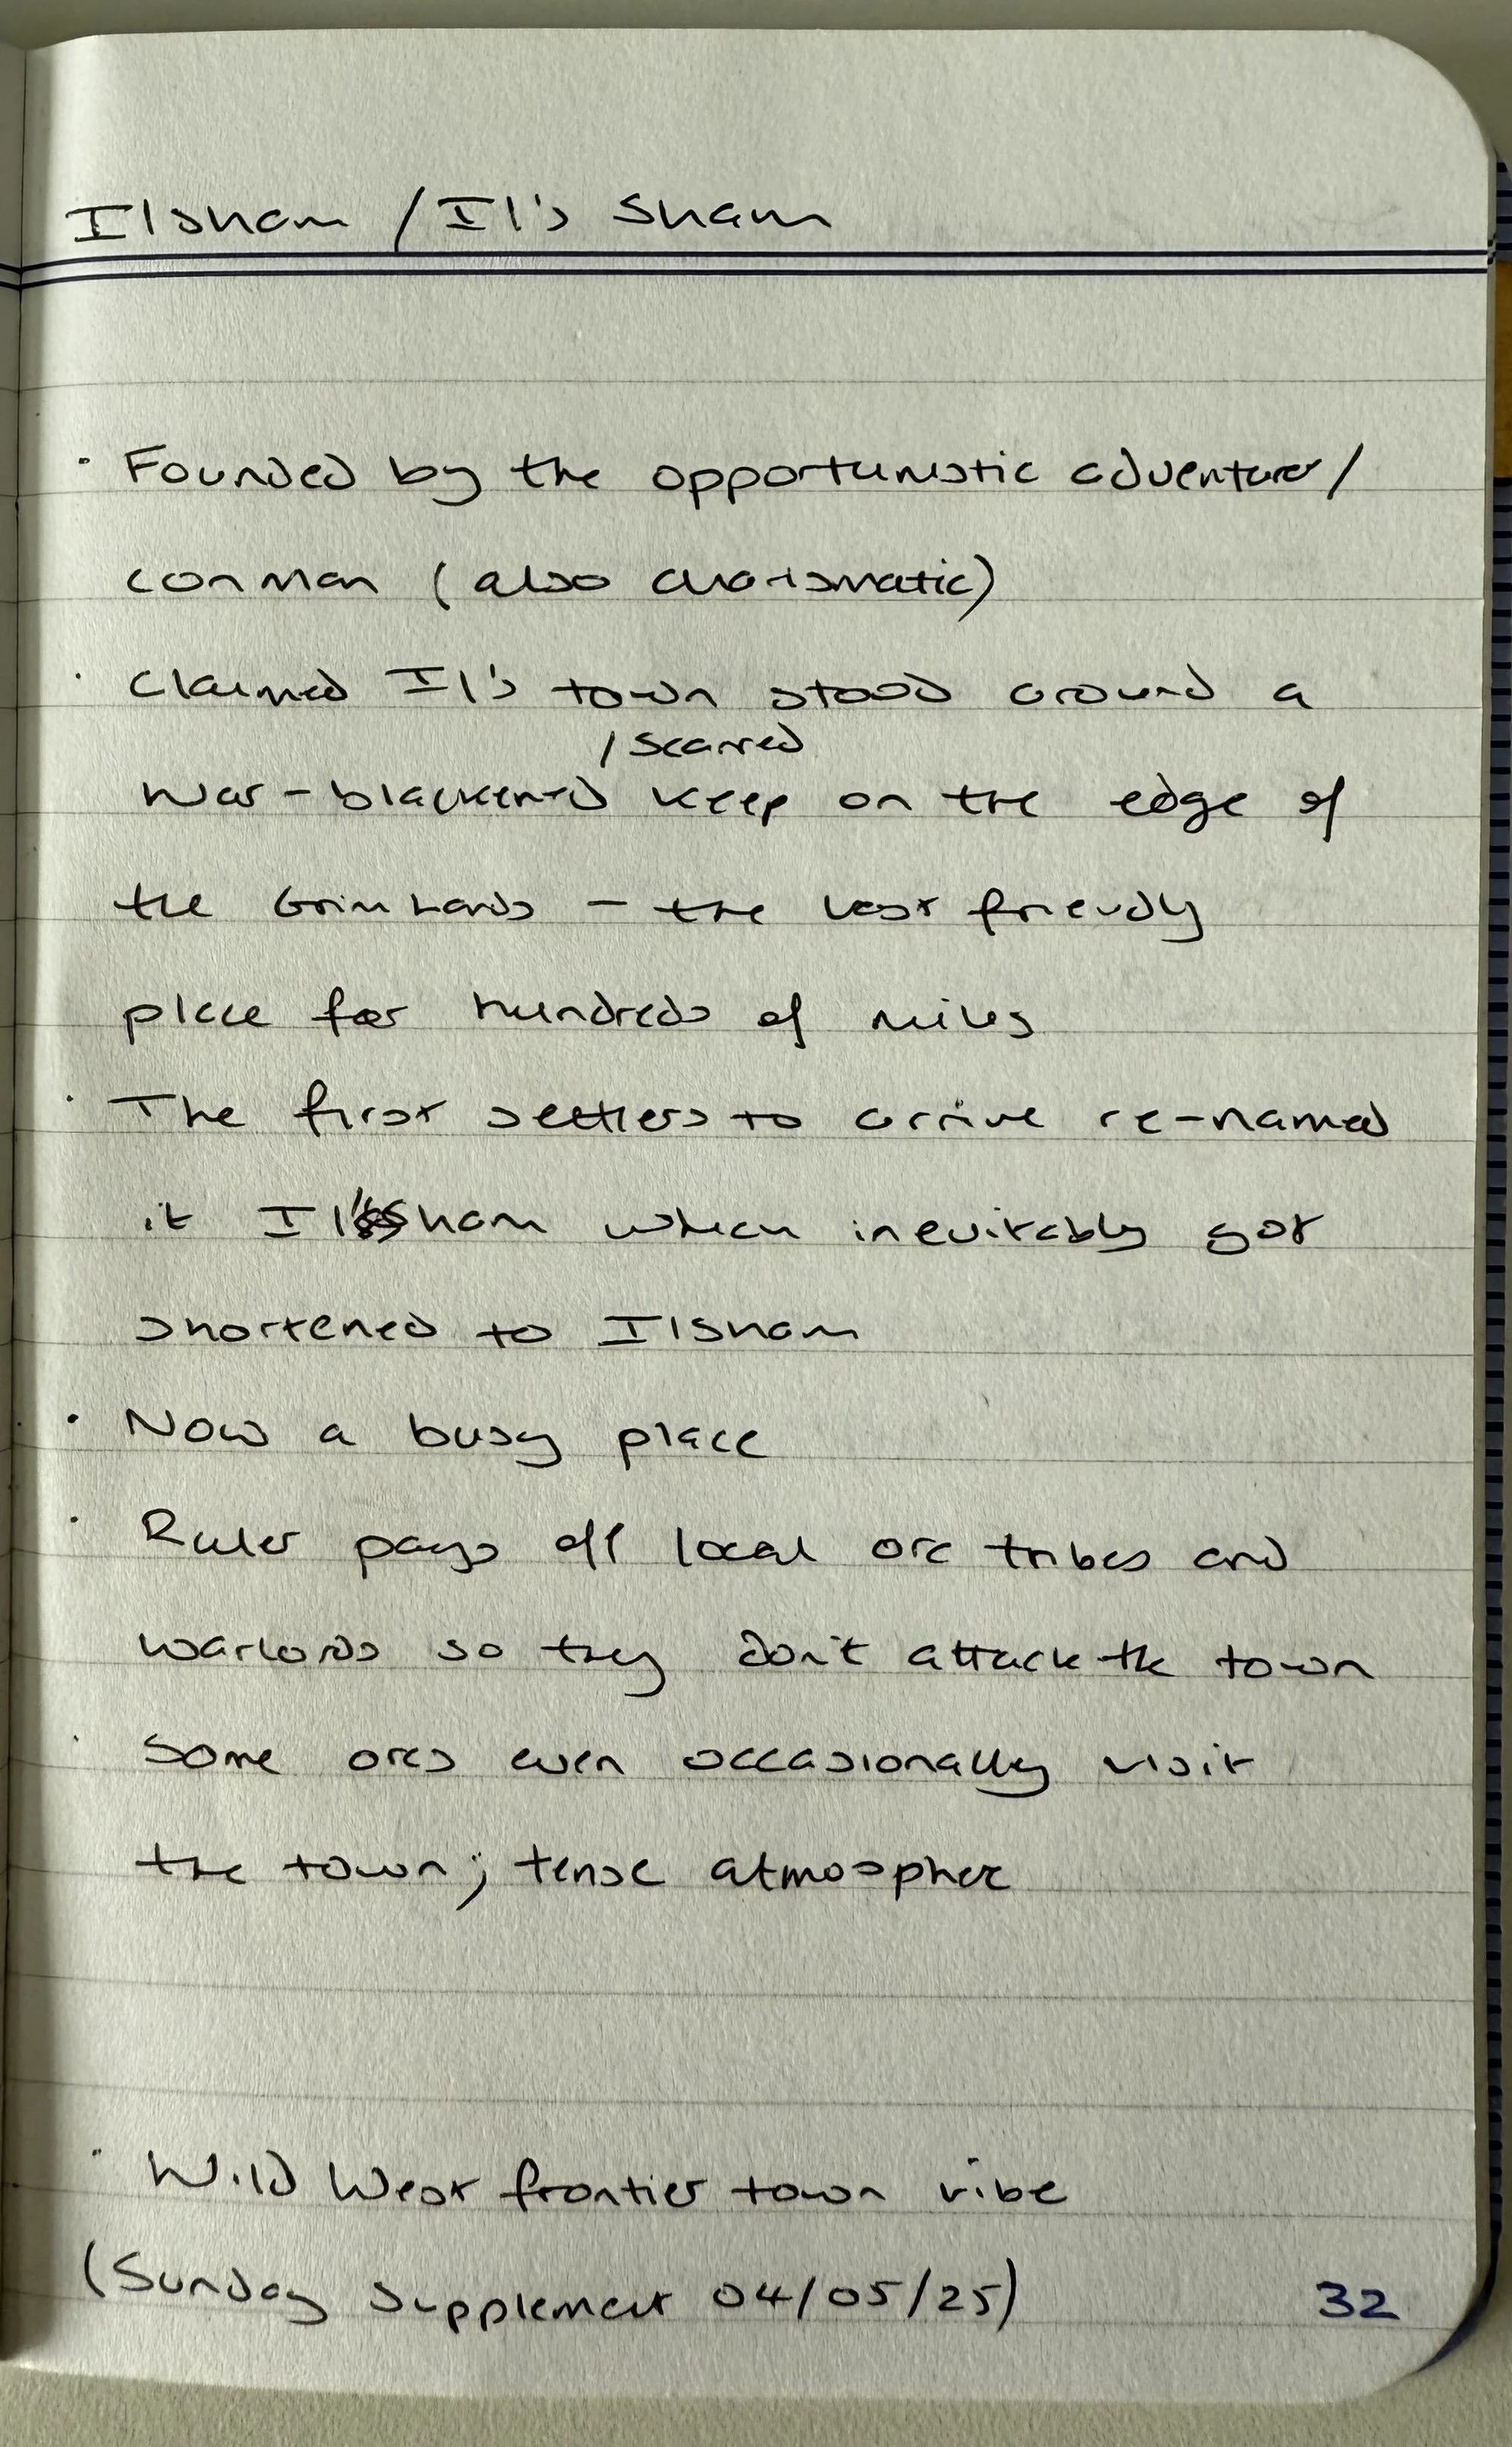 Ilsham / Il's Sham
· Founded by the opportunistic adventurer/
conman (also charismatic)
· Claimed Il's town stood around a
/ scarred
war-blackened keep on the edge of
the Grim Lands – the last friendly
place for hundreds of miles
· The first settlers to arrive re-named
it Il'sham which inevitably got
shortened to Ilsham
· Now a busy place
· Ruler pays off local orc tribes and
warlords so they don't attack the town
· Some orcs even occasionally visit
the town; tense atmosphere
· Wild West frontier town vibe
(Sunday Supplement 04/05/25)
32